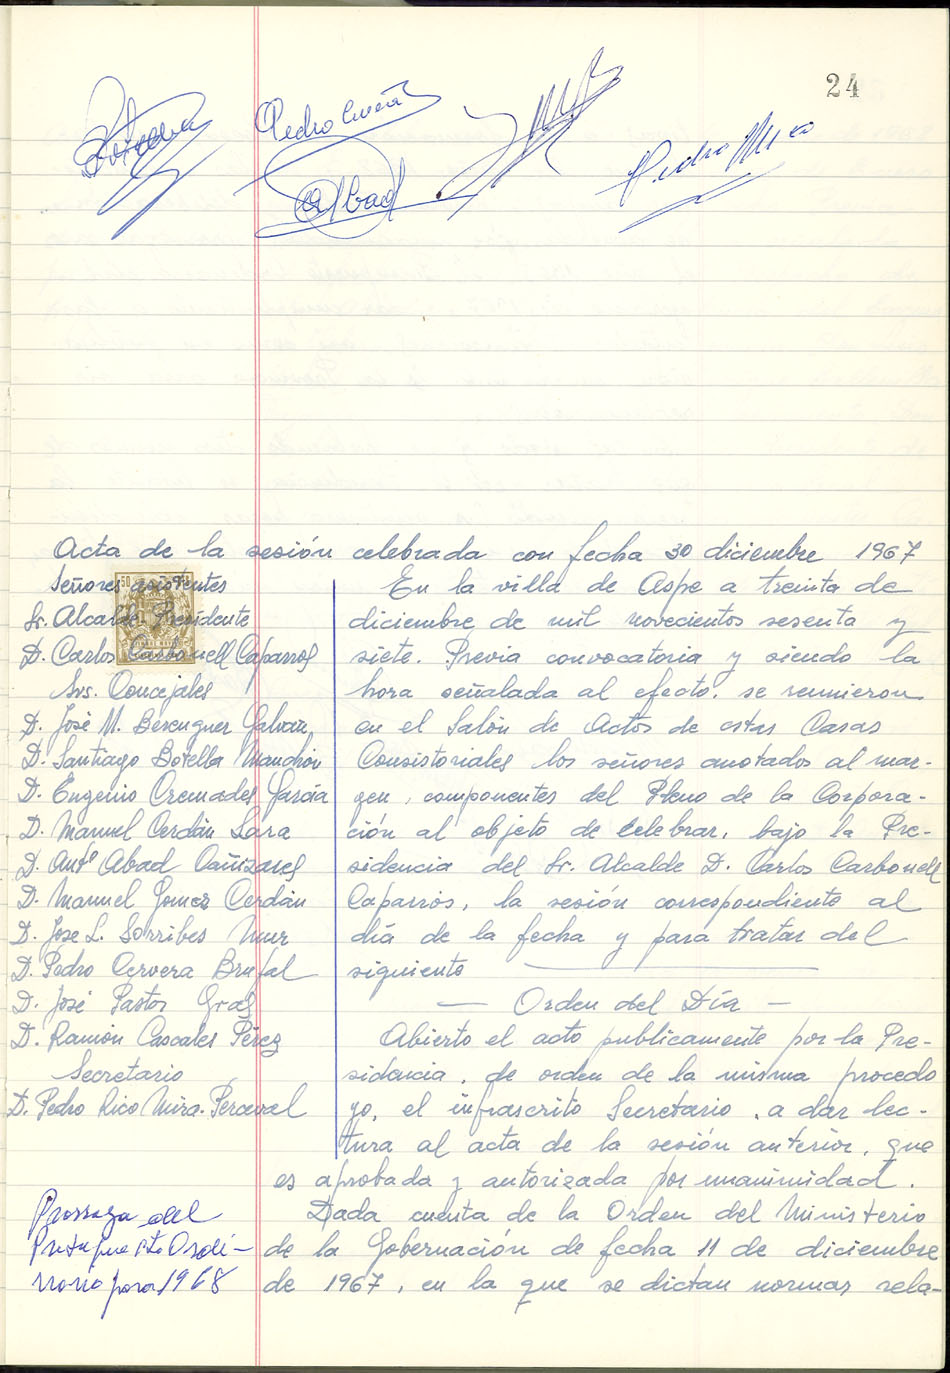 24
Pedro Cerve
Abad
Pedro Rico
Acta de la sesión celebrada con fecha 30 diciembre 1967
Señores asistentes
Sr. Alcalde-Presidente
D. Carlos Carbonell Caparros
Srs. Concejales
D. José M. Berenguer Galvan
D. Santiago Botella Manchón
D. Eugenio Cremades García
D. Manuel Cerdán Lara
D. Antº Abad Cañizares
D. Manuel Gomez Cerdán
D. Jose L. Sorribes Mur
D. Pedro Cervera Brufal
D. José Pastor Gras
D. Ramón Cascales Pérez
Secretario
D. Pedro Rico Mira-Perceval
En la villa de Aspe a treinta de
diciembre de mil novecientos sesenta y
siete. Previa convocatoria y siendo la
hora señalada al efecto, se reunieron
en el Salón de Actos de estas Casas
Consistoriales los señores anotados al mar-
gen, componentes del Pleno de la Corpora-
ción al objeto de celebrar, bajo la Pre-
sidencia del Sr. Alcalde D. Carlos Carbonell
Caparrós, la sesión correspondiente al
día de la fecha y para tratar del
siguiente
— Orden del Día —
Abierto el acto publicamente por la Pre-
sidencia, de orden de la misma procedo
yo, el infrascrito Secretario, a dar lec-
tura al acta de la sesión anterior, que
es aprobada y autorizada por unanimidad.
Prorroga del
Presupuesto Ordi-
nario para 1968
Dada cuenta de la Orden del Ministerio
de la Gobernación de fecha 11 de diciembre
de 1967, en la que se dictan normas rela-